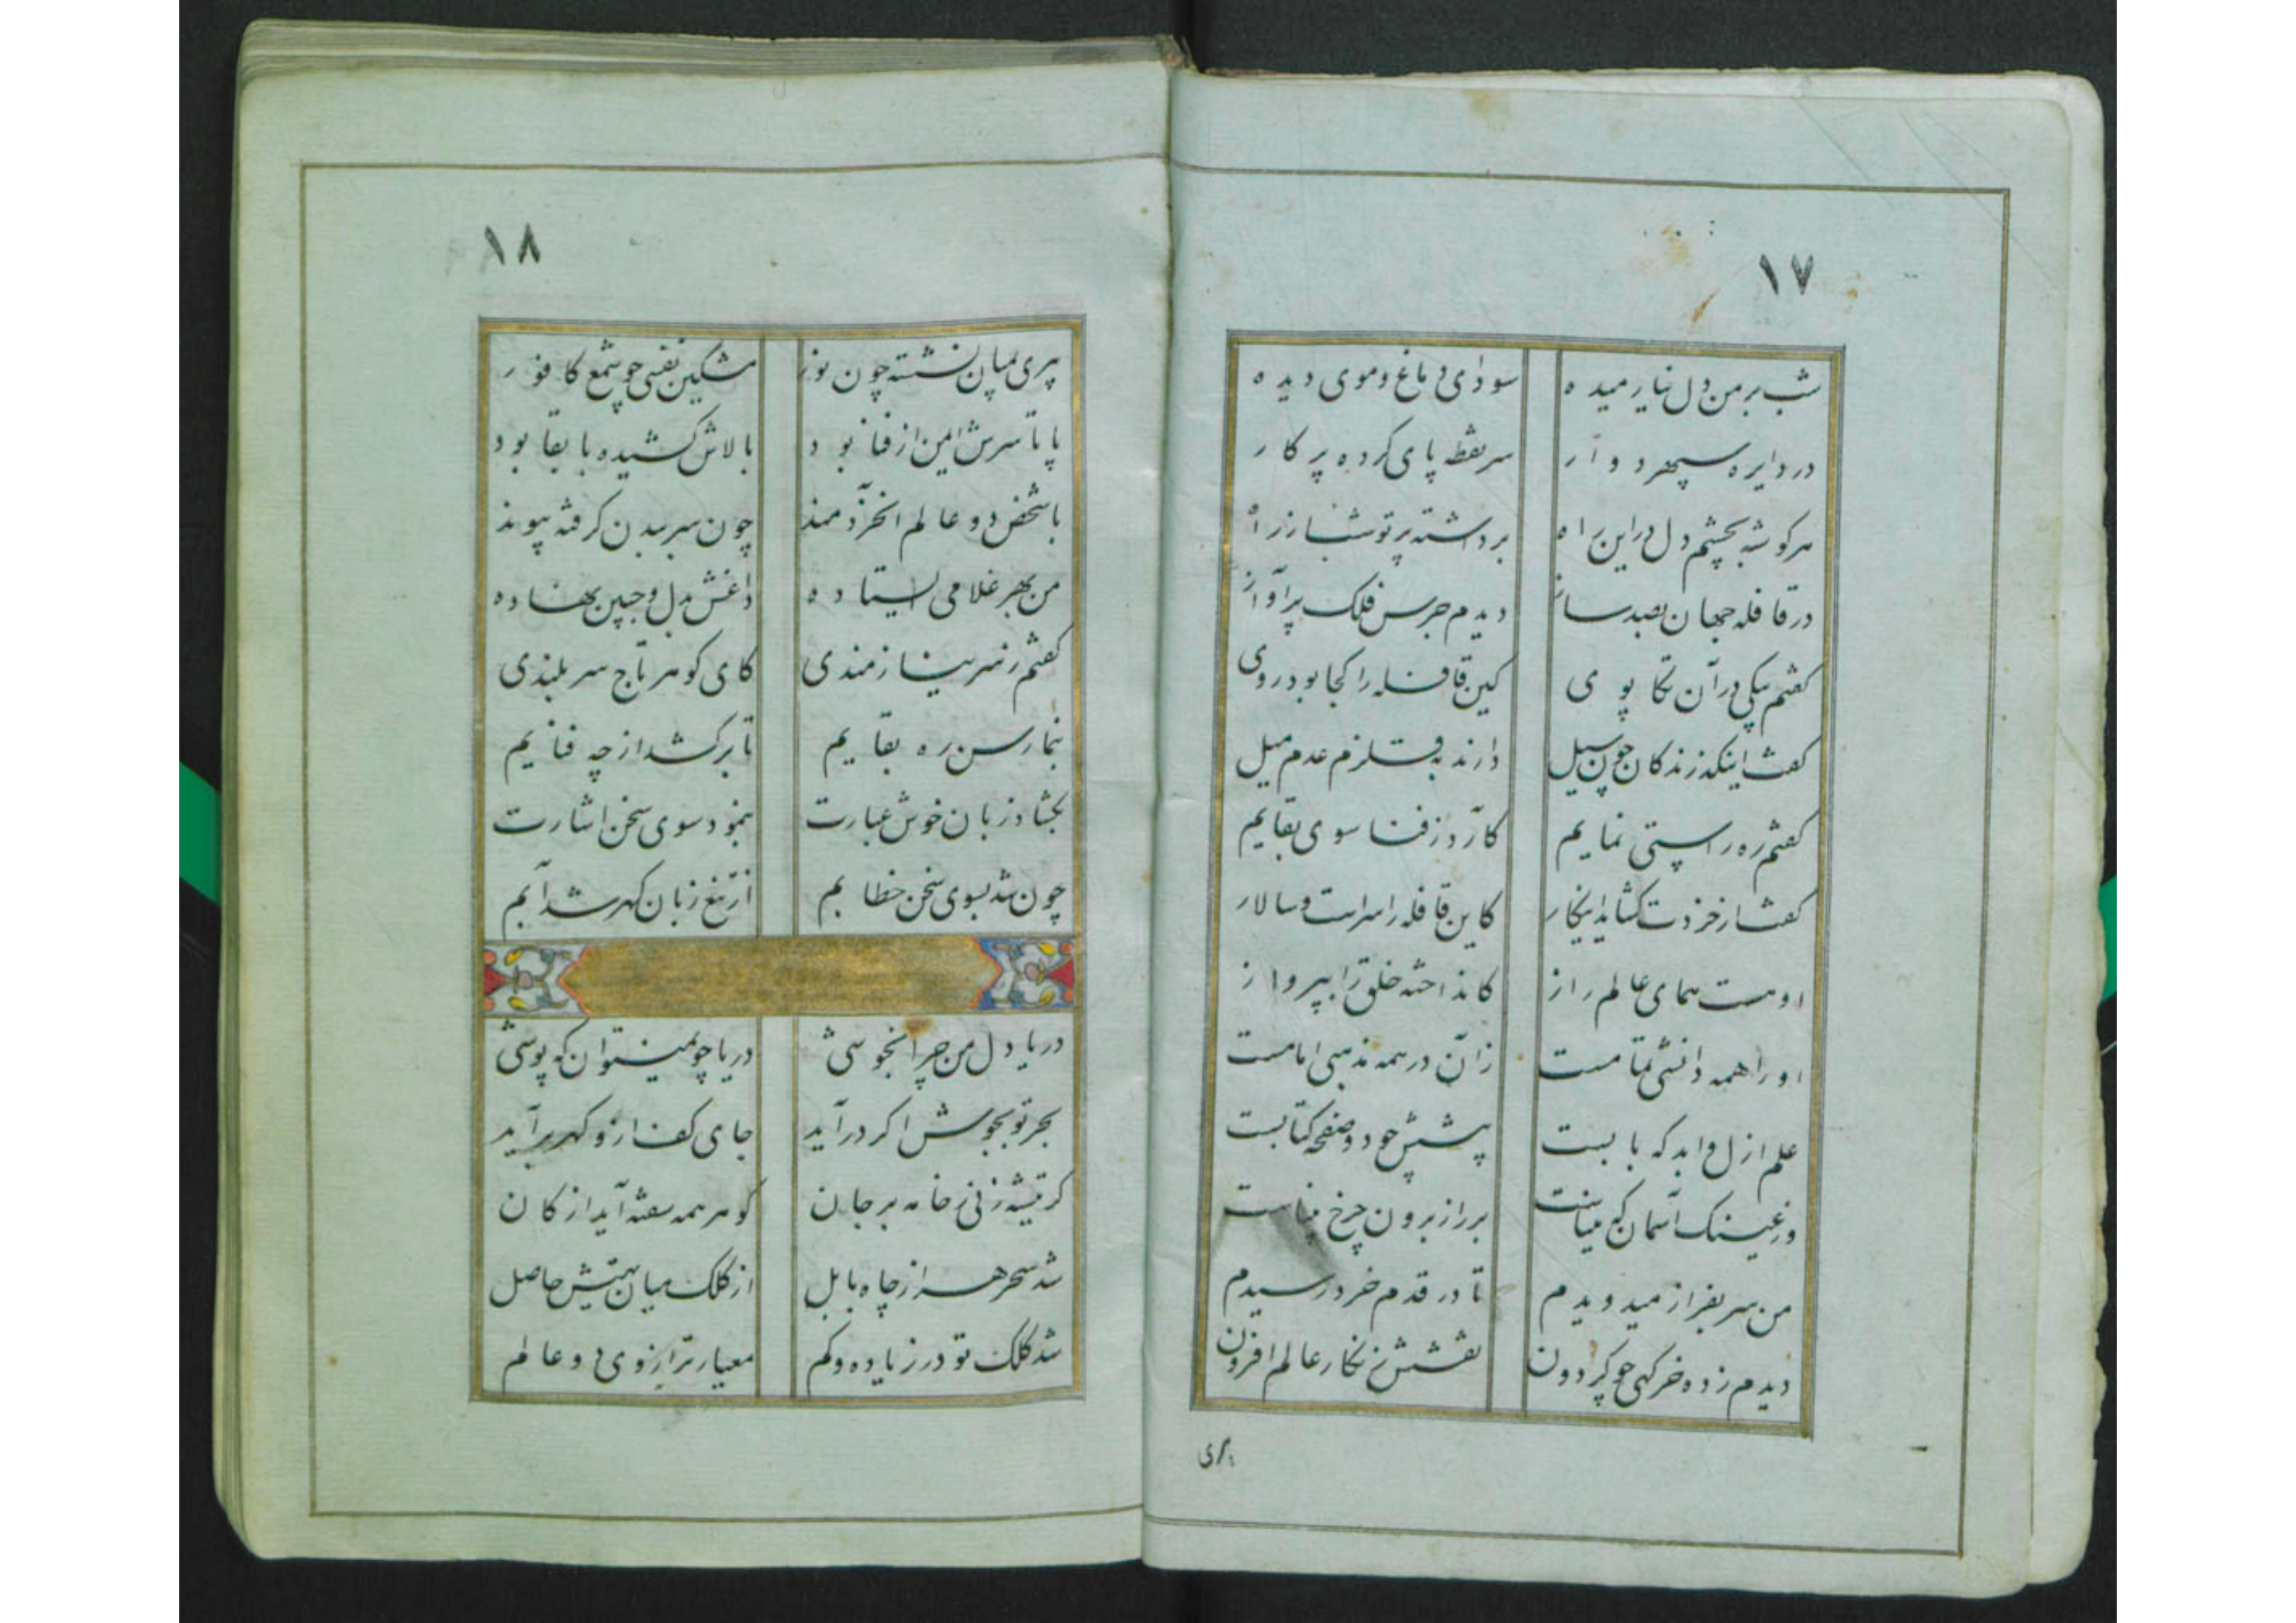 ١٧
شب بر من دل نیارمیده سودای دماغ و موی دیده
در دایره سپهر دوآر سر نقطه پای کرده پرکار
هر کوشه بچشم دل دراین راه برداشته پرتو شبا
در قافله جهان بصد ساز دیدم جرس فلک پرآواز
کفتم یکی در آن تکاپوی کین قافله را کجا بود روی
کفت اینکه زندکان چون سیل دارند به قلزم عدم میل
کفتم ره راستی نمایم کآرد ز فنا سوی بقایم
کفتا ز خردت کشاید اینکار کاین قافله را سراست و سالار
اوهست همای عالم راز کانداخته خلق را بپرواز
اورا همه دانشی تمامست زآن در همه مذهبی امامست
علم ازل و ابد که بابست پیشش چو دو صفحه کتابست
وز عینک آسمان که میناست بر راز برون چرخ بیناست
من سر بفراز میدویدم تا در قدم خرد رسیدم
دیدم زده خرکهی چو کردون نقشش ز نکار عالم افزون
پیری
١٨
پری بمیان نشسته چون نور مشکین نفسی چو شمع کافور
پا تا سرش امن از فنا بود بالاش کشیده با بقا بود
با شخص دو عالم آنخردمند چون سر ببدن کرفته پیوند
من بهر غلامی ایستاده داغش بدل و جبین نهاده
کفتم ز سر نیازمندی کای کوهر تاج سر بلندی
بنما رسن ره بقایم تا برکشد از چه فنایم
بکشاد زبان خوش عبارت بنمود سوی سخن اشارت
چون شد بسوی سخن خطابم از تیغ زبان کهر شد آبم
دریا دل من چرا نجوشی دریا چو نمیتوان که پوشی
بحر تو بجوش اکر درآید جای کف ازو کهر برآید
کر تیشه زنی ز خامه بر جان کوهر همه سفته آید از کان
شد سحر هم از چاه بابل از کلک میان تهیش حاصل
شد کلک تو در زیاده و کم معیار ترازوی دو عالم